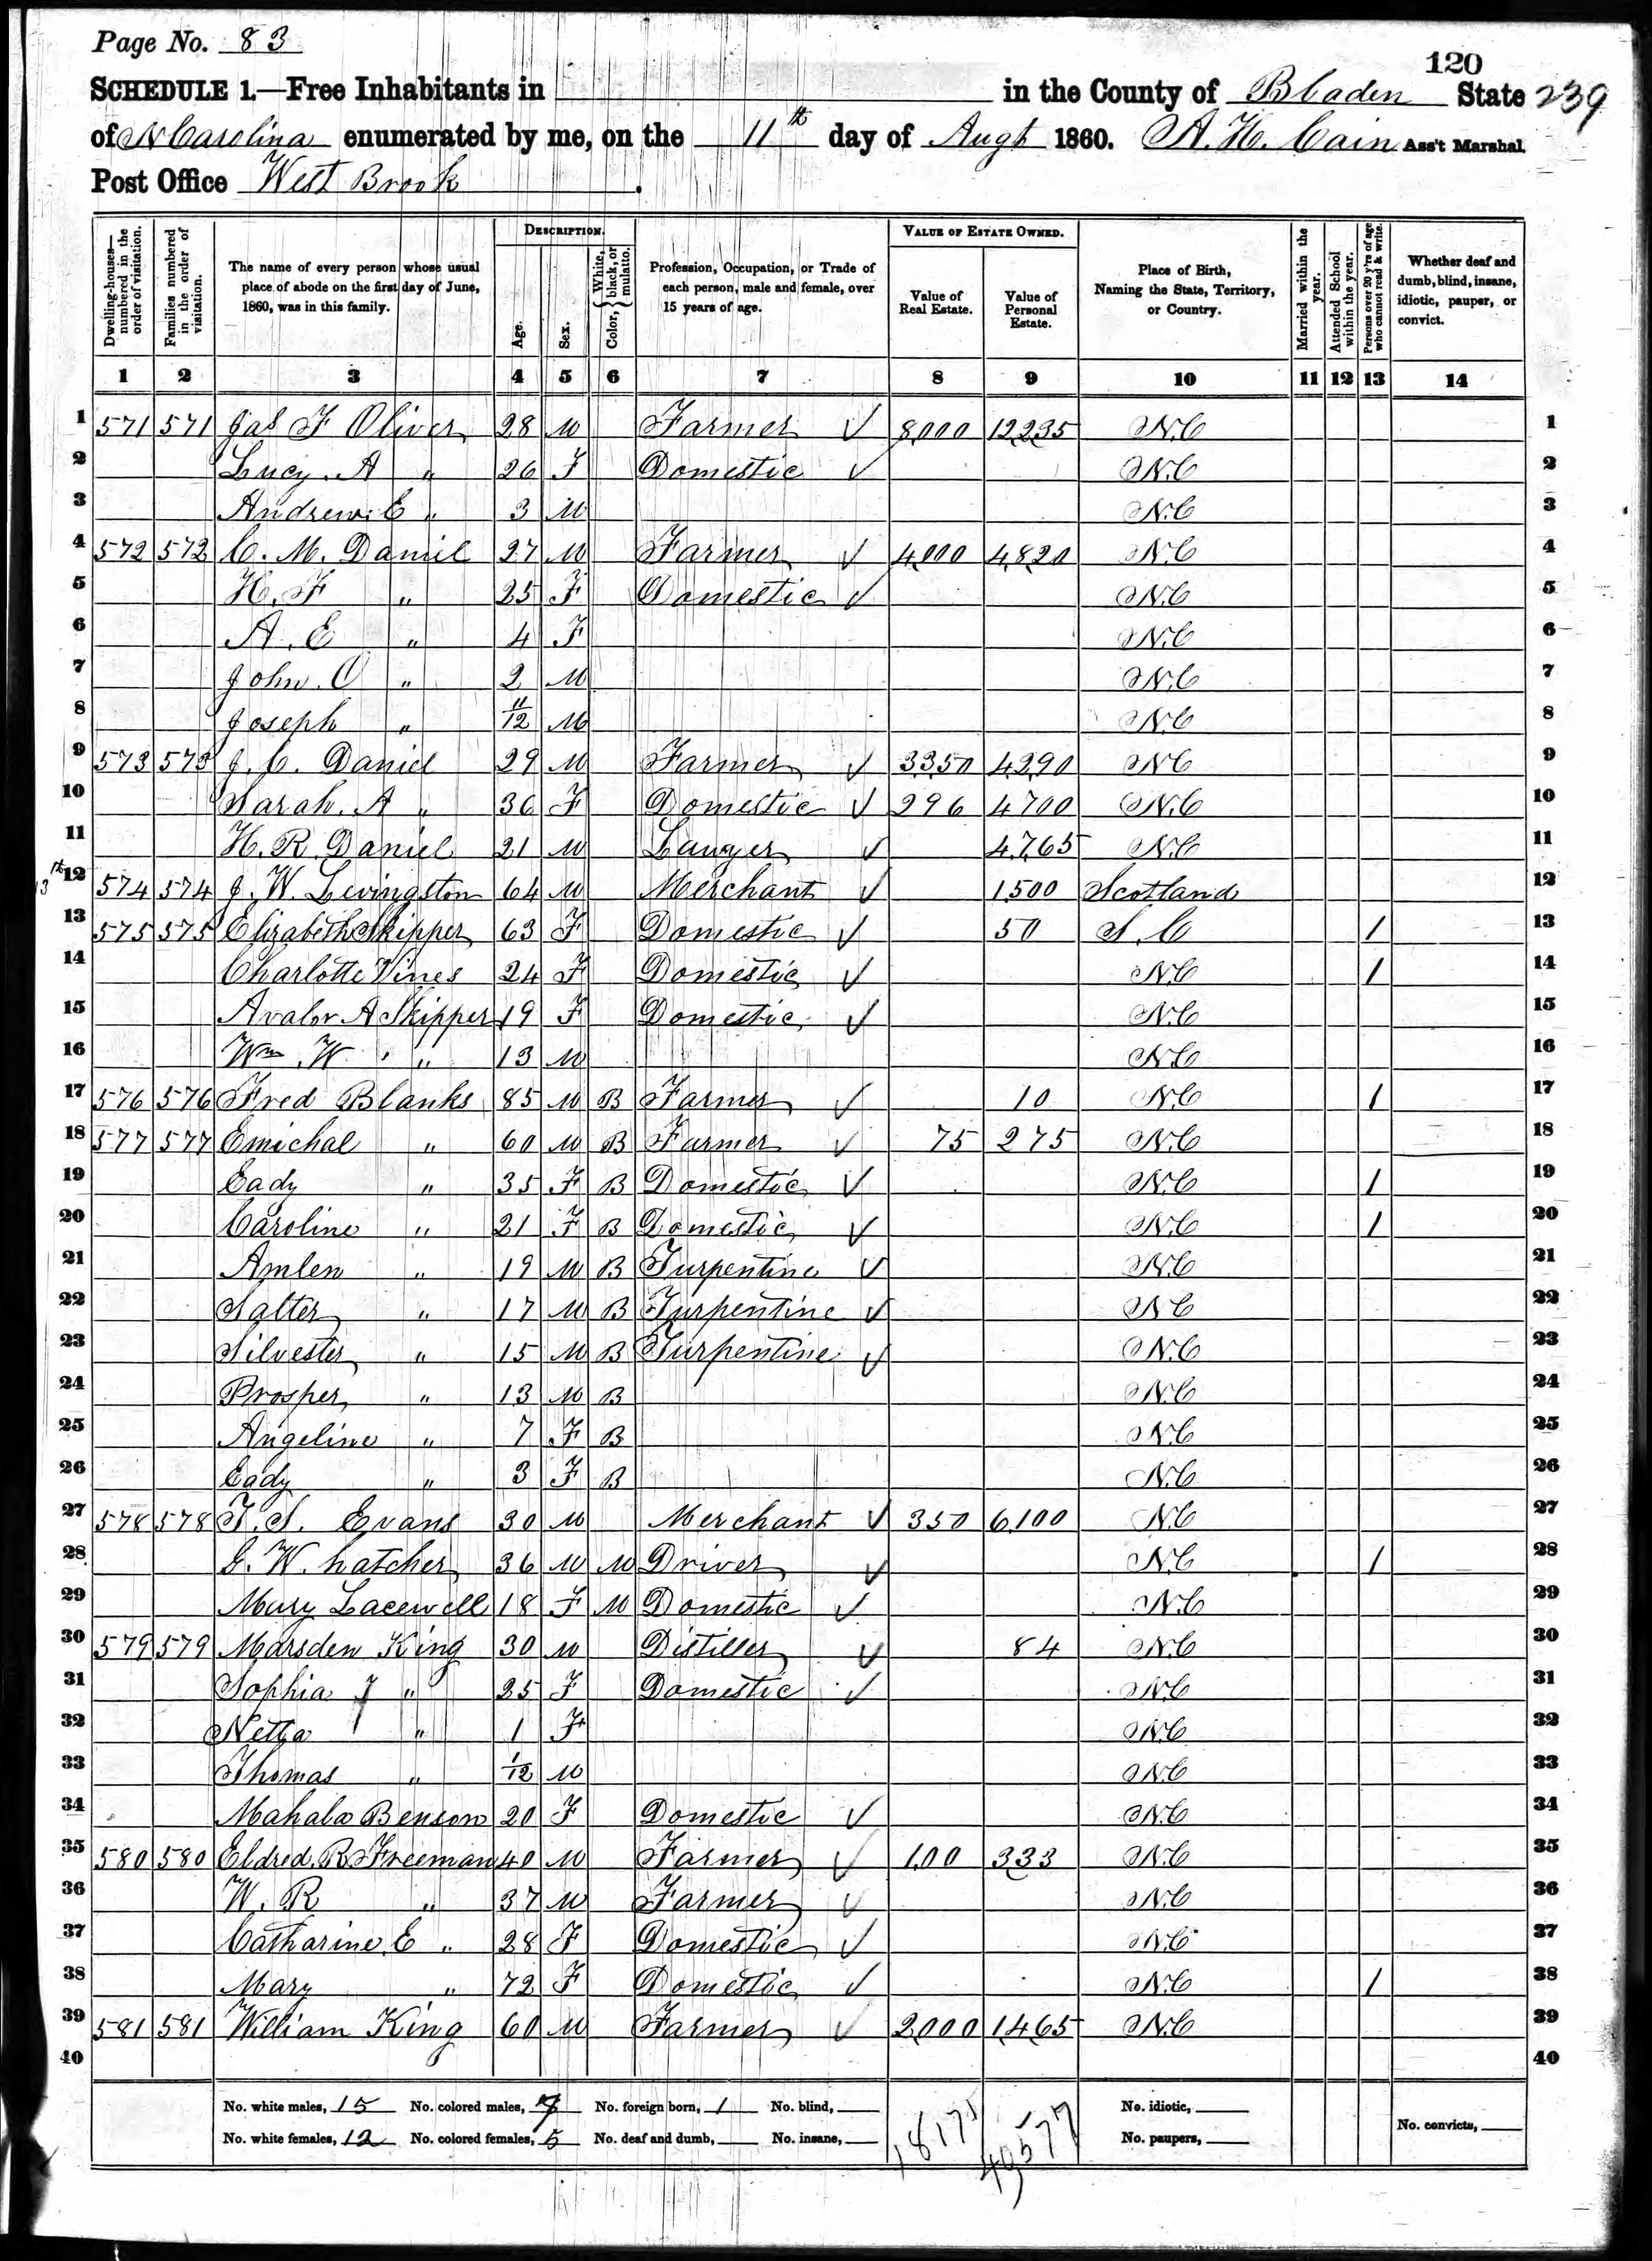 Page No. 83
120
SCHEDULE 1.—Free Inhabitants in in the County of Bladen State 239
of N Carolina enumerated by me, on the 11th day of Augt 1860. A. H. Cain Ass't Marshal.
Post Office West Brook.
Dwelling-houses—numbered in the order of visitation. Families numbered in the order of visitation. The name of every person whose usual place of abode on the first day of June, 1860, was in this family. DESCRIPTION. Age. Sex. Color, { White, black, or mulatto. Profession, Occupation, or Trade of each person, male and female, over 15 years of age. VALUE OF ESTATE OWNED. Value of Real Estate. Value of Personal Estate. Place of Birth, Naming the State, Territory, or Country. Married within the year. Attended School within the year. Persons over 20 y'rs of age who cannot read & write. Whether deaf and dumb, blind, insane, idiotic, pauper, or convict.
1 2 3 4 5 6 7 8 9 10 11 12 13 14
1 571 571 Jas F Oliver 28 M Farmer ✓ 8,000 12,235 N.C 1
2 Lucy. A " 26 F Domestic ✓ N.C 2
3 Andrew. E " 3 M N.C 3
4 572 572 C. M. Daniel 27 M Farmer ✓ 4,000 4,820 N.C 4
5 H. F " 25 F Domestic ✓ N.C 5
6 A. E " 4 F N.C 6
7 John. O " 2 M N.C 7
8 Joseph " 11/12 M N.C 8
9 573 573 J. C. Daniel 29 M Farmer ✓ 3,350 4,290 N.C 9
10 Sarah. A " 36 F Domestic ✓ 296 4700 N.C 10
11 H. R. Daniel 21 M Lawyer ✓ 4,765 N.C 11
13th 12 574 574 J. W. Levingston 64 M Merchant ✓ 1,500 Scotland 12
13 575 575 Elizabeth Skipper 63 F Domestic ✓ 50 S. C 1 13
14 Charlotte Vines 24 F Domestic ✓ N.C 1 14
15 Avalor A Skipper 19 F Domestic ✓ N.C 15
16 Wm. W " 13 M N.C 16
17 576 576 Fred Blanks 85 M B Farmer ✓ 10 N.C 1 17
18 577 577 Emichal " 60 M B Farmer ✓ 75 275 N.C 18
19 Eady " 35 F B Domestic ✓ N.C 1 19
20 Caroline " 21 F B Domestic ✓ N.C 1 20
21 Amlen " 19 M B Turpentine ✓ N.C 21
22 Salter " 17 M B Turpentine ✓ N.C 22
23 Silvester " 15 M B Turpentine ✓ N.C 23
24 Prosper " 13 M B N.C 24
25 Angeline " 7 F B N.C 25
26 Eady " 3 F B N.C 26
27 578 578 T. S. Evans 30 M Merchant ✓ 350 6,100 N.C 27
28 G. W. hatcher 36 M M Driver ✓ N.C 1 28
29 Mary Lacewell 18 F M Domestic ✓ N.C 29
30 579 579 Marsden King 30 M Distiller ✓ 84 N.C 30
31 Sophia J " 25 F Domestic ✓ N.C 31
32 Netta " 1 F N.C 32
33 Thomas " 1/12 M N.C 33
34 Mahala Benson 20 F Domestic ✓ N.C 34
35 580 580 Eldred. R Freeman 40 M Farmer ✓ 100 333 N.C 35
36 W. R " 37 M Farmer ✓ N.C 36
37 Catharine. E " 28 F Domestic ✓ N.C 37
38 Mary " 72 F Domestic ✓ N.C 1 38
39 581 581 William King 60 M Farmer ✓ 2,000 1,465 N.C 39
40 40
No. white males, 15 No. colored males, 7 No. foreign born, 1 No. blind, No. idiotic,
No. white females, 12 No. colored females, 5 No. deaf and dumb, No. insane, 18175 40,577 No. paupers, No. convicts,